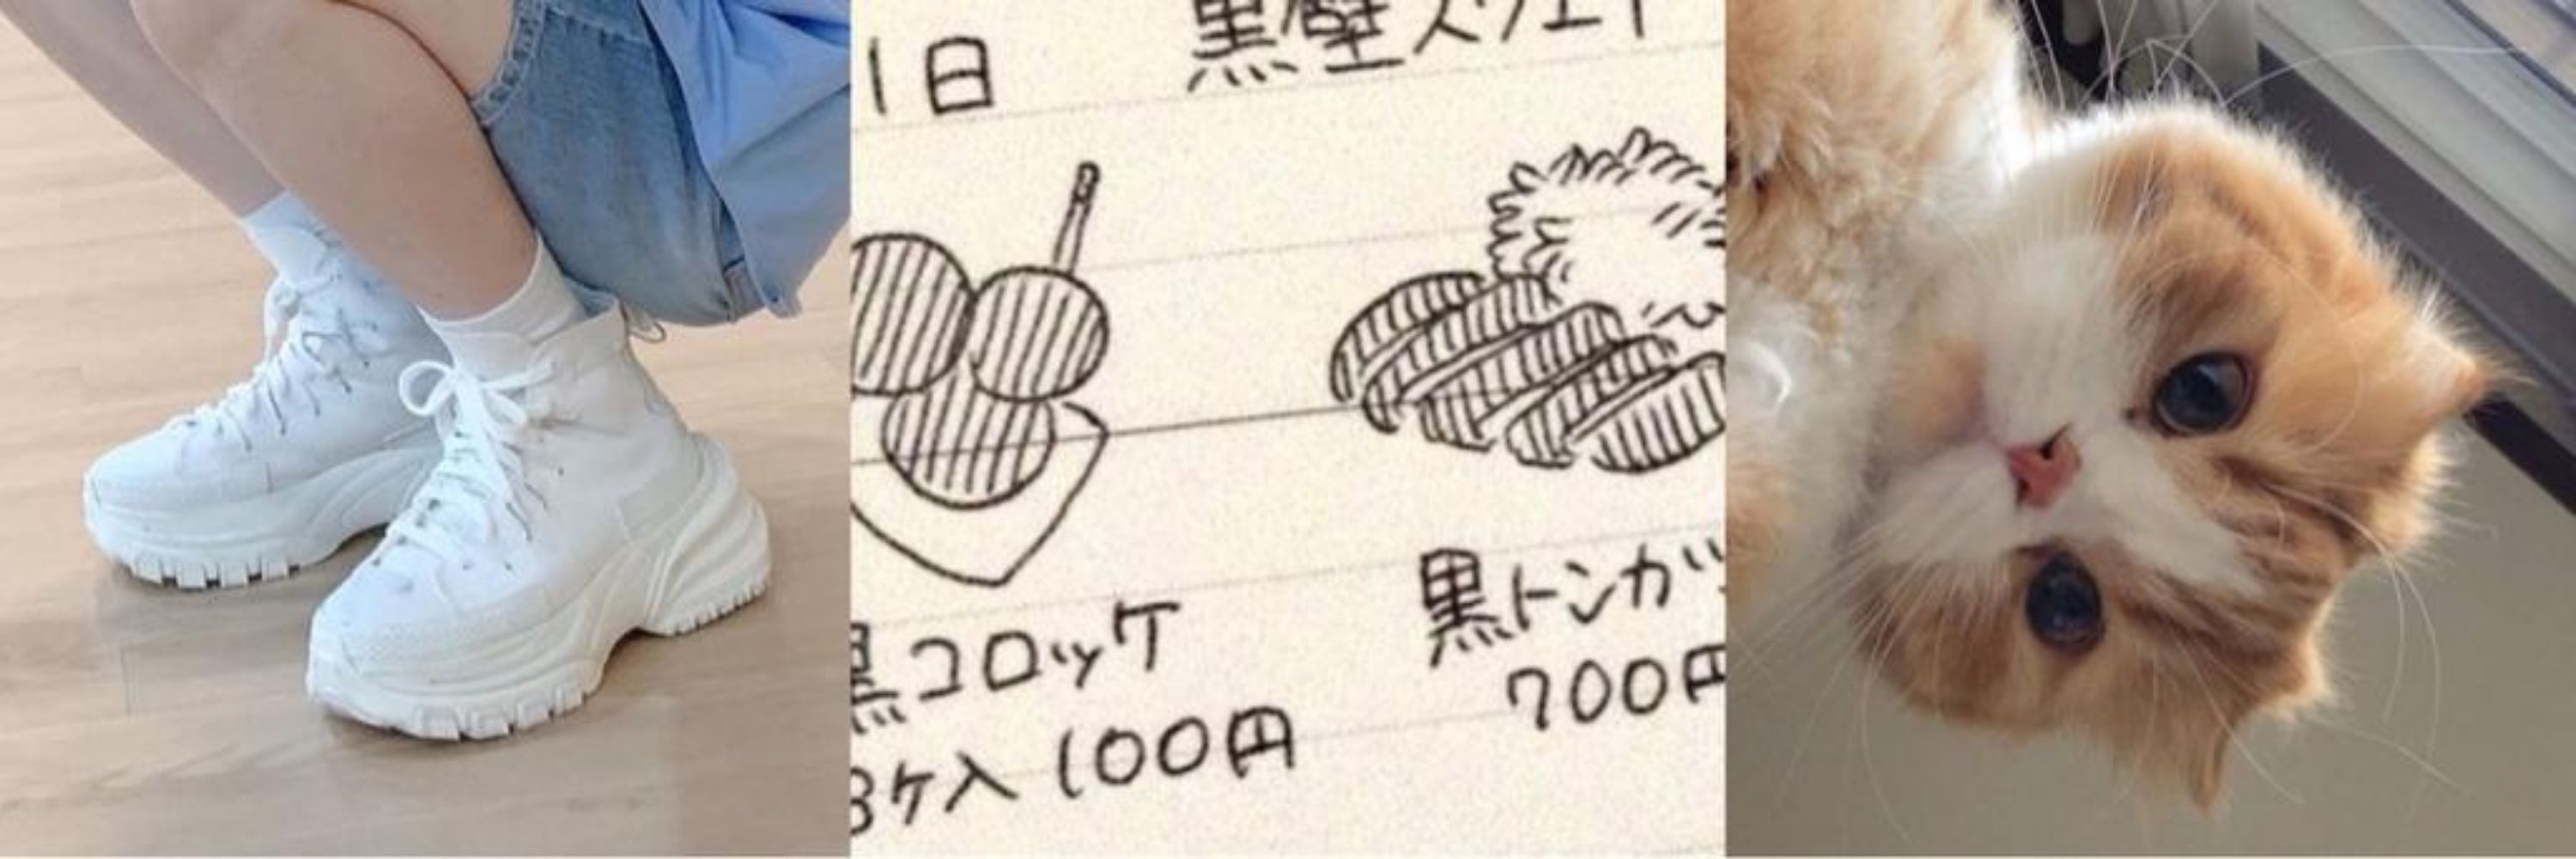 1日
黒壁スクエア
黒コロッケ
3ケ入 100円
黒トンカツ
700円